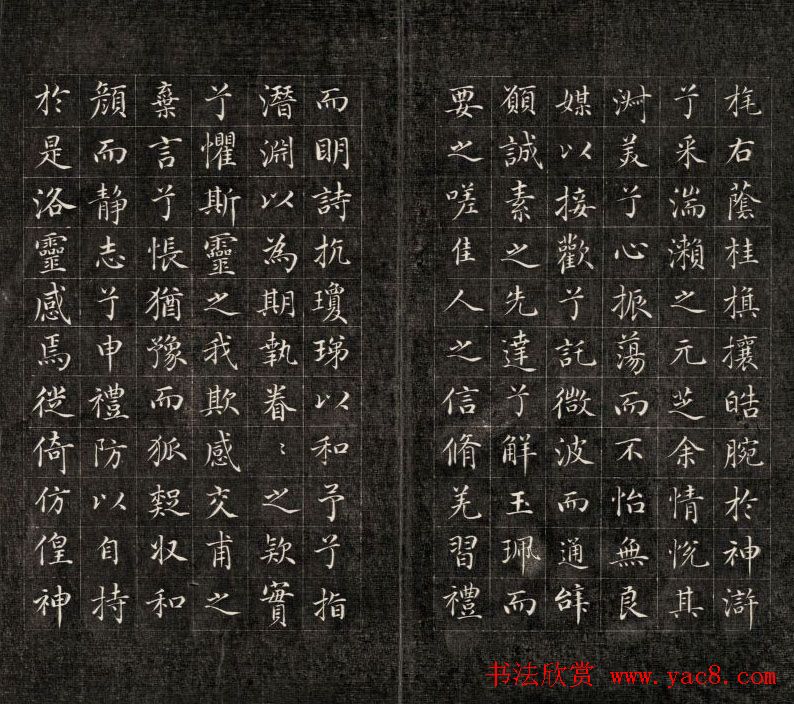 旄右蔭桂旗攘皓腕於神滸
兮采湍瀨之元芝余情悅其
淑美兮心振蕩而不怡無良
媒以接歡兮託微波而通辭
願誠素之先達兮解玉珮而
要之嗟佳人之信脩羌習禮
而明詩抗瓊珶以和予兮指
潛淵以為期執眷〻之款實
兮懼斯靈之我欺感交甫之
棄言兮悵猶豫而狐疑収和
顏而靜志兮申禮防以自持
於是洛靈感焉徙倚仿偟神
书法欣赏 www.yac8.com